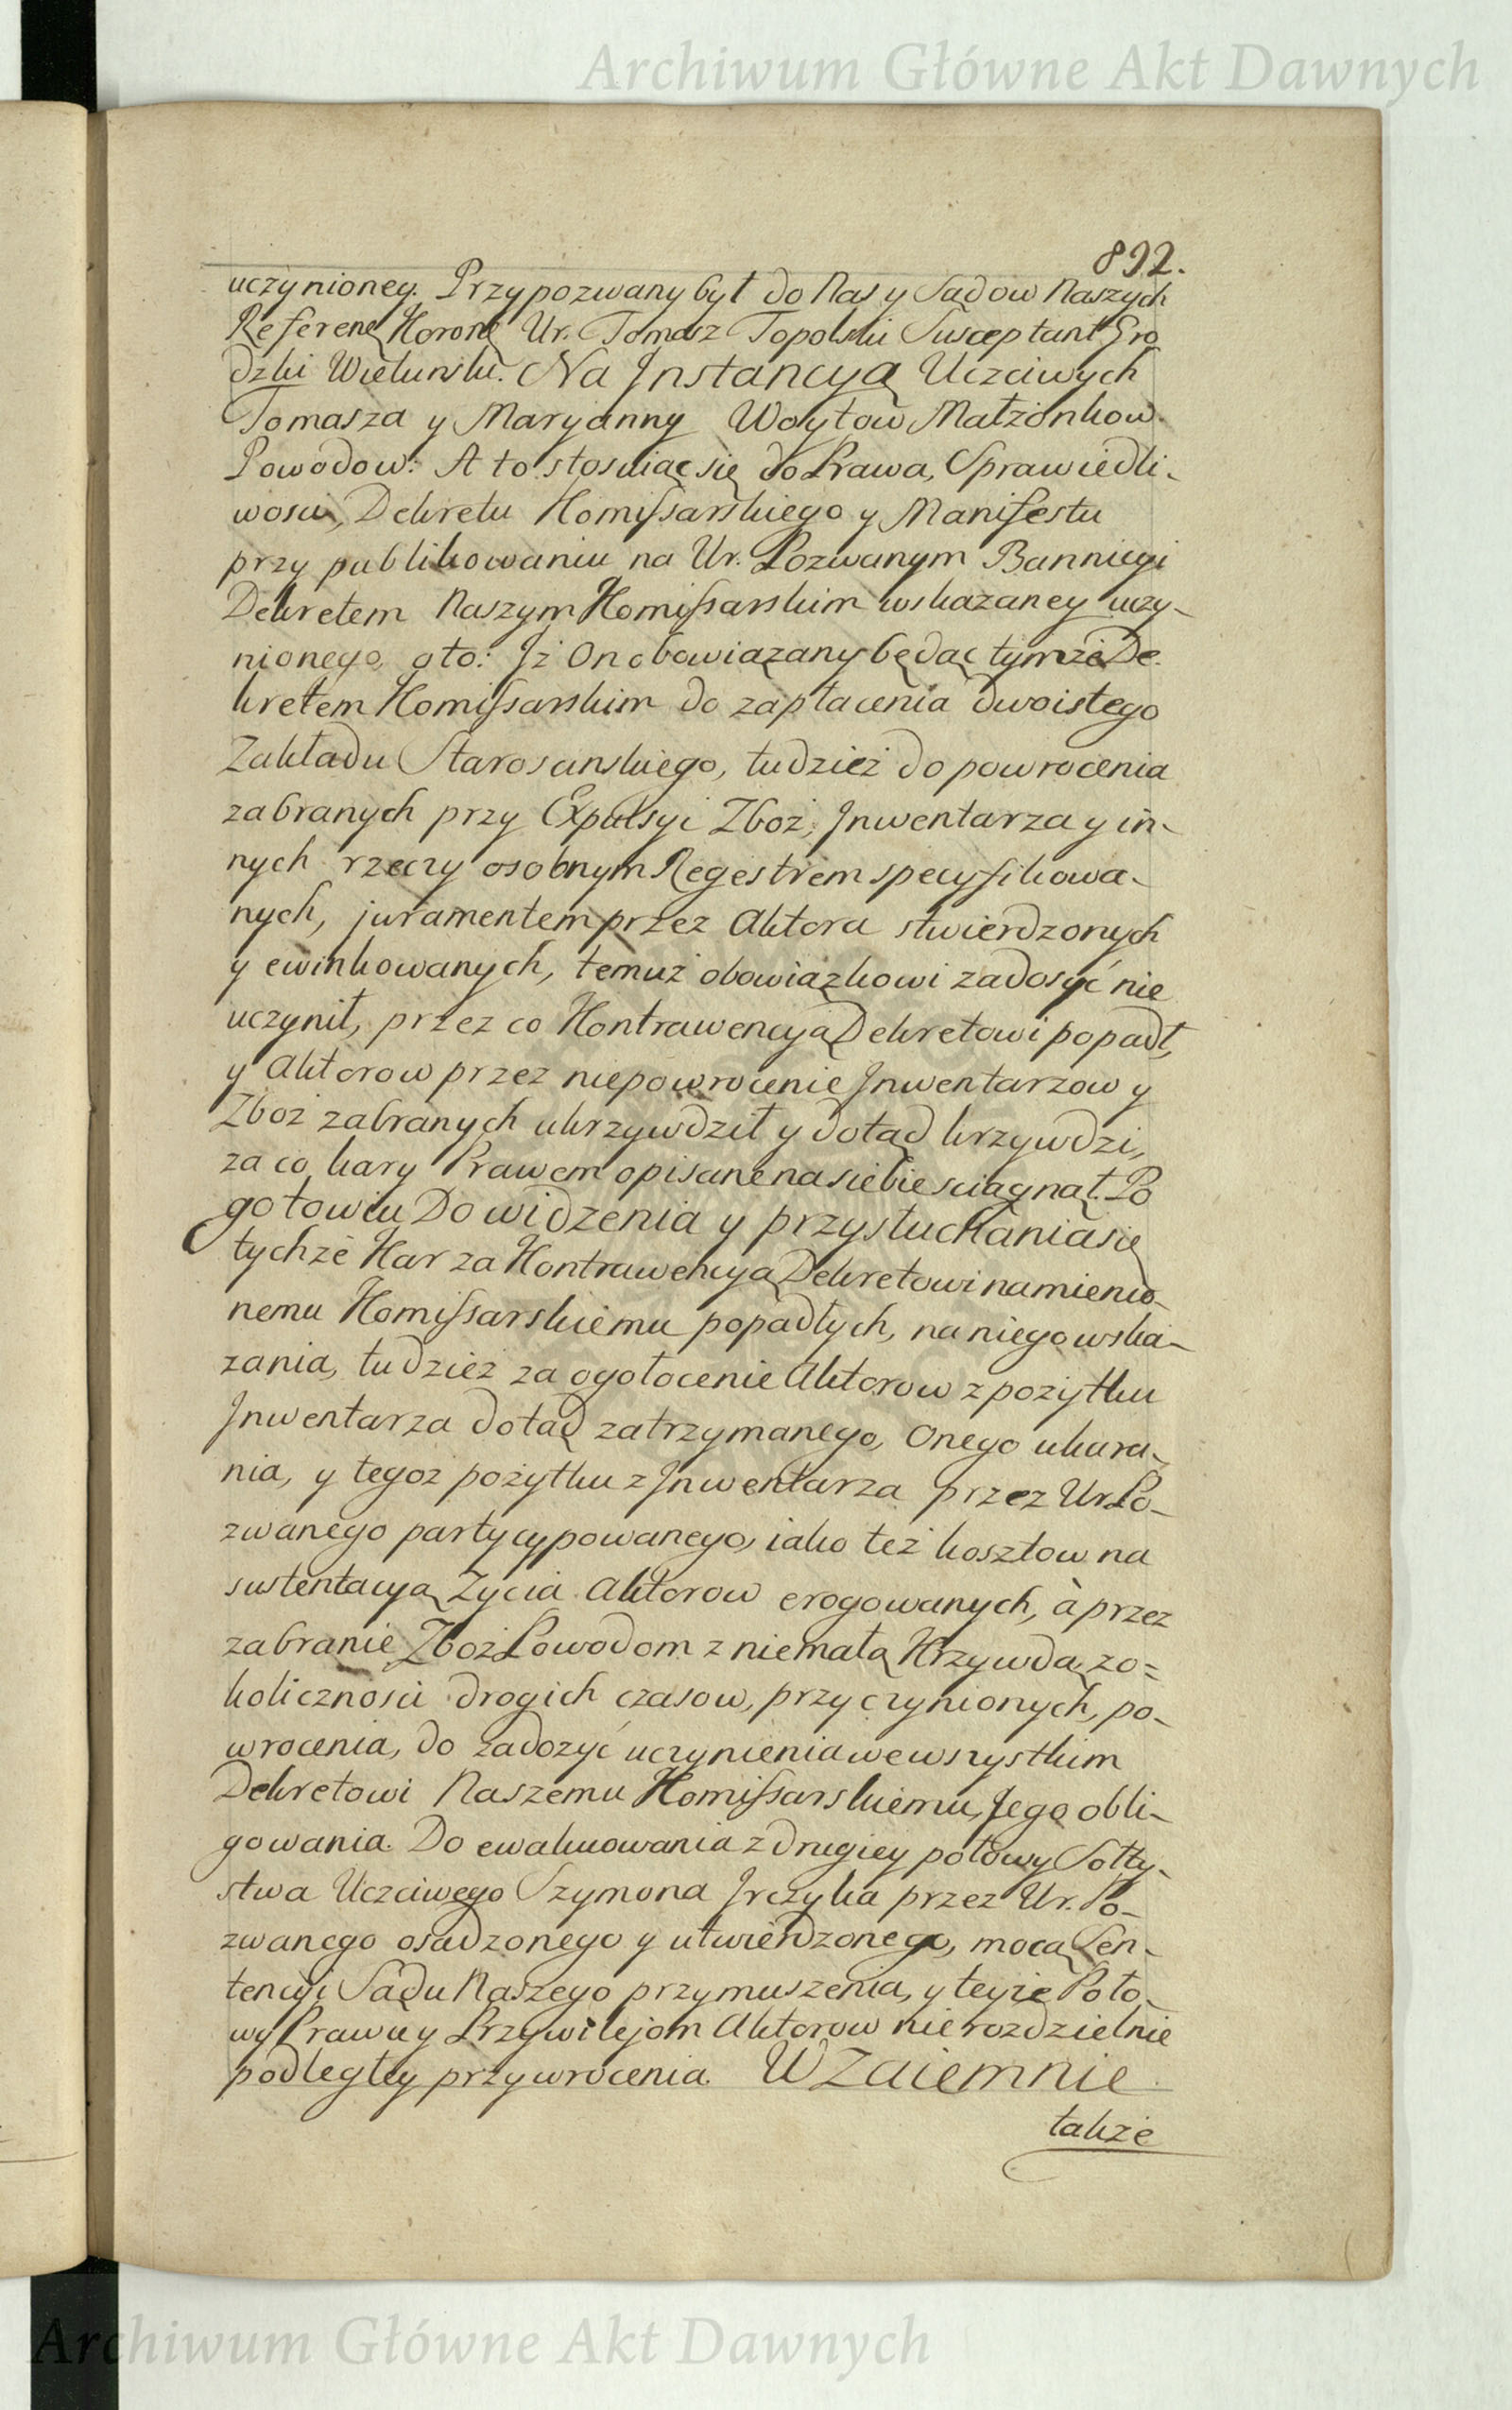 Archiwum Główne Akt Dawnych
892.
uczynioney. Przypozwany był do Nas y Sądow Naszych
Referenẹ Koronẹ Ur. Tomasz Topolski Susceptant Gro
dzki Wielunski. Na Jnstancyą Uczciwych
Tomasza y Maryanny Woytow Małżonkow
Powodow: A to stosuiąc się do Prawa, Sprawiedli-
wosci, Dekretu Komissarskiego y Manifestu
przy publikowaniu na Ur. Pozwanym Banniegi
Dekretem Naszym Komissarskim wskazaney uczy-
nionego, oto: Jż On obowiązany będąc tymże De-
kretem Komissarskim do zapłacenia dwoistego
Zakładu Staroscinskiego, tudzież do powrocenia
zabranych przy Expulsyi Zboż, Jnwentarza y in-
nych rzeczy osobnym Regestrem specyfikowa-
nych, juramentem przez Aktora stwierdzonych
y ewinkowanych, temuż obowiązkowi zadosyć nie
uczynił, przez co Kontrawencyą Dekretowi popadł,
y Aktorow przez niepowrocenie Jnwentarzow y
Zboż zabranych ukrzywdził y dotąd krzywdzi,
za co kary Prawem opisane na siebie sciągnął. Po
gotowiu Do widzenia y przysłuchania się
tychże Kar za Kontrawencyą Dekretowi namienio-
nemu Komissarskiemu popadłych, na niego wska-
zania, tudzież za ogołocenie Aktorow z pożytku
Jnwentarza dotąd zatrzymanego, Onego ukara-
nia, y tegoż pożytku z Jnwentarza przez Ur. Po-
zwanego partycypowanego, iako też kosztow na
sustentacyą Zycia Aktorow erogowanych, à przez
zabranie Zboż Powodom z niemałą Krzywdą, zo=
koliczności drogich czasow, przyczynionych, po-
wrocenia, do zadozyć uczynienia we wszystkim
Dekretowi Naszemu Komissarskiemu, Jego obli-
gowania. Do ewakuowania z drugiey połowy Sołty-
stwa Uczciwego Szymona Jrczyka przez Ur. Po-
zwanego osadzonego y utwierdzonego, mocą Sen-
tencyi Sądu Naszego przymuszenia, y teyże Poło-
wy Prawu y Przywilejom Aktorow nierozdzielnie
podległey przywrocenia. Wzaiemnie
także
Archiwum Główne Akt Dawnych